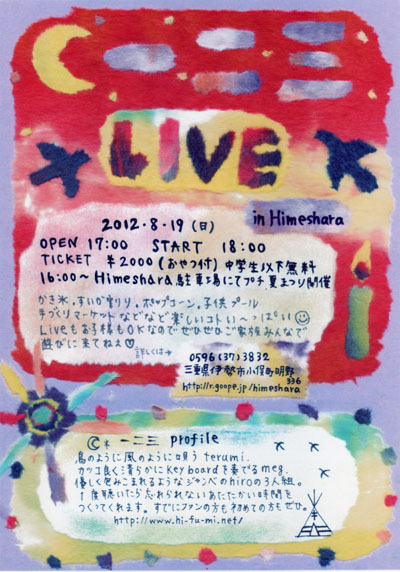 LIVE
in Himeshara
2012・8・19 (日)
OPEN 17:00 START 18:00
TICKET ¥2000 (おやつ付) 中学生以下無料
16:00〜Himeshara駐車場にてプチ夏まつり開催
かき氷。すいか割り。ポップコーン。子供プール
手づくりマーケットなどなど楽しいコトい〜っぱい☺
Liveもお子様もOKなのでぜひぜひご家族みんなで
遊びに来てねえ♡
詳しくは→
0596(37)3832
三重県伊勢市小俣町明野
336
http://r.goope.jp/himeshara
一二三 profile
鳥のように風のように唄う terumi.
カッコ良く清らかに keyboardを奏でるmeg.
優しく包みこまれるようなジャンベのhiroの3人組。
1度聴いたら忘れられないあたたかい時間を
つくってくれます。すでにファンの方も初めての方もぜひ。
http://www.hi-fu-mi.net/